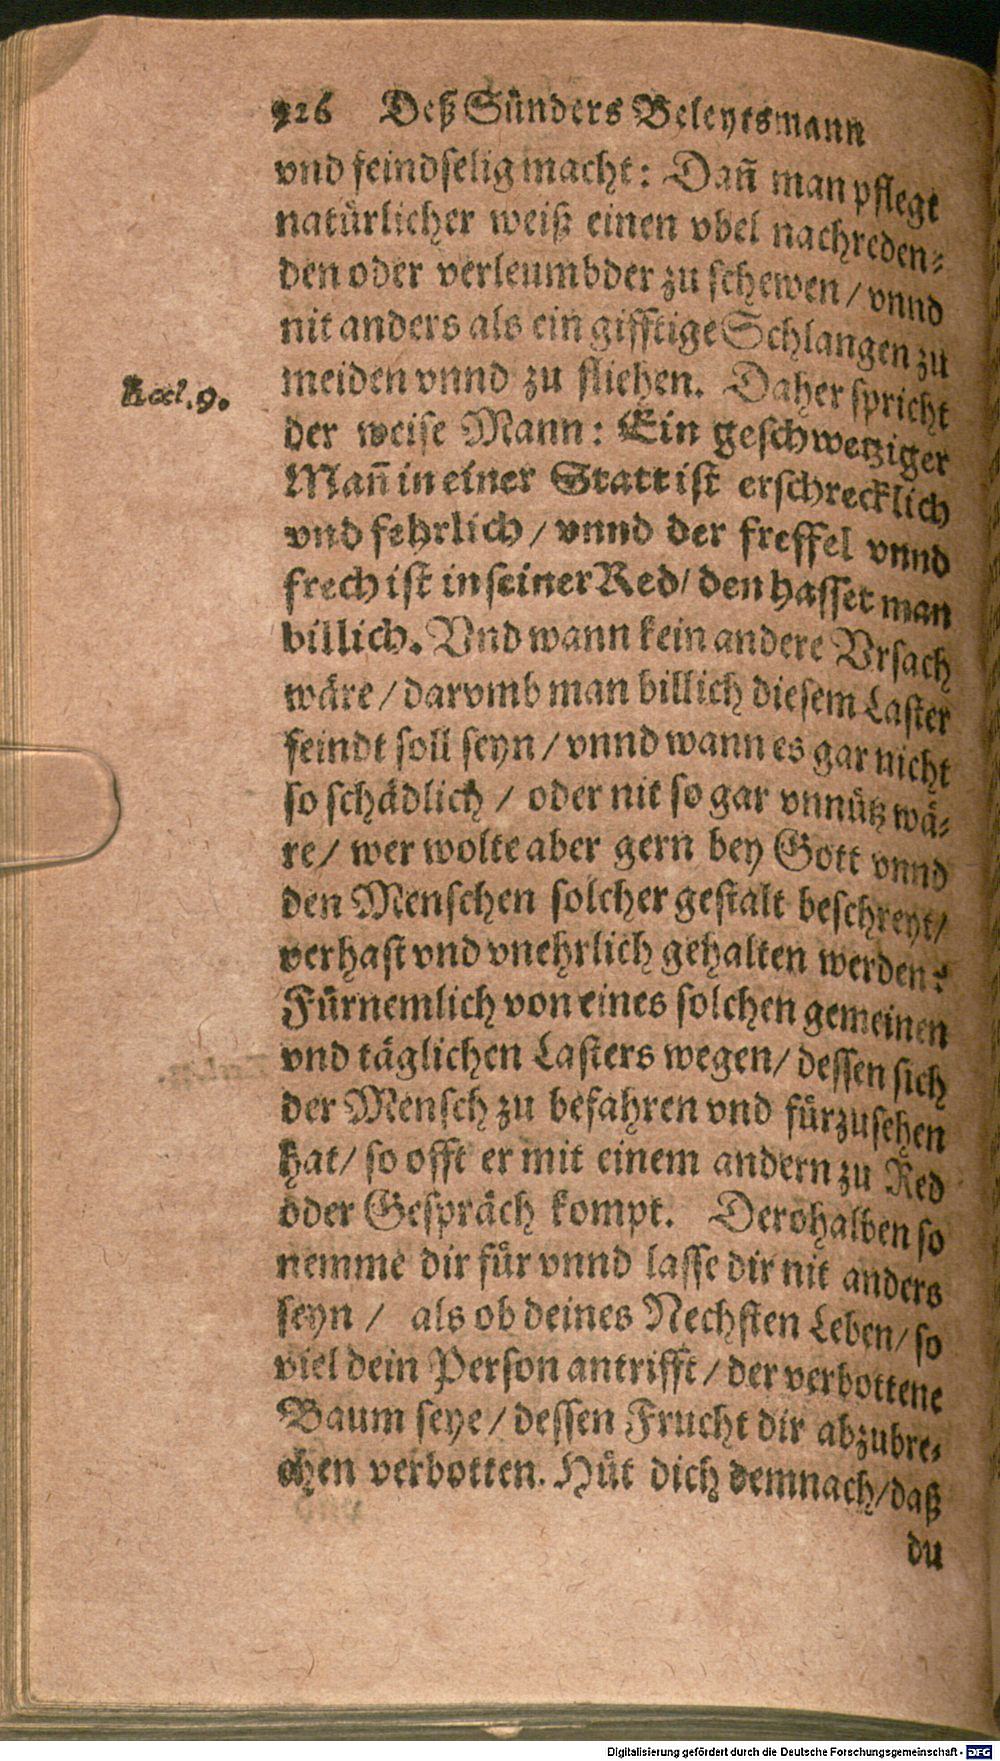 926 Deß Sünders Beleytsmann
vnd feindselig macht: Dañ man pflegt
natürlicher weiß einen vbel nachreden-
den oder verleumbder zu schewen / vnnd
nit anders als ein gifftige Schlangen zu
meiden vnnd zu fliehen. Daher spricht
Eccl. 9.
der weise Mann: Ein geschwetziger
Mañ in einer Statt ist erschrecklich
vnd fehrlich / vnnd der freffel vnnd
frech ist in seiner Red / den hasset man
billich. Vnd wann kein andere Vrsach
wäre / darvmb man billich diesem Laster
feindt soll seyn / vnnd wann es gar nicht
so schädlich / oder nit so gar vnnütz wä-
re / wer wolte aber gern bey Gott vnnd
den Menschen solcher gestalt beschreyt /
verhast vnd vnehrlich gehalten werden?
Fürnemlich von eines solchen gemeinen
vnd täglichen Lasters wegen / dessen sich
der Mensch zu befahren vnd fürzusehen
hat / so offt er mit einem andern zu Red
oder Gespräch kompt. Derohalben so
nemme dir für vnnd lasse dir nit anders
seyn / als ob deines Nechsten Leben / so
viel dein Person antrifft / der verbottene
Baum seye / dessen Frucht dir abzubre-
chen verbotten. Hüt dich demnach / daß
du
Digitalisierung gefördert durch die Deutsche Forschungsgemeinschaft - DFG